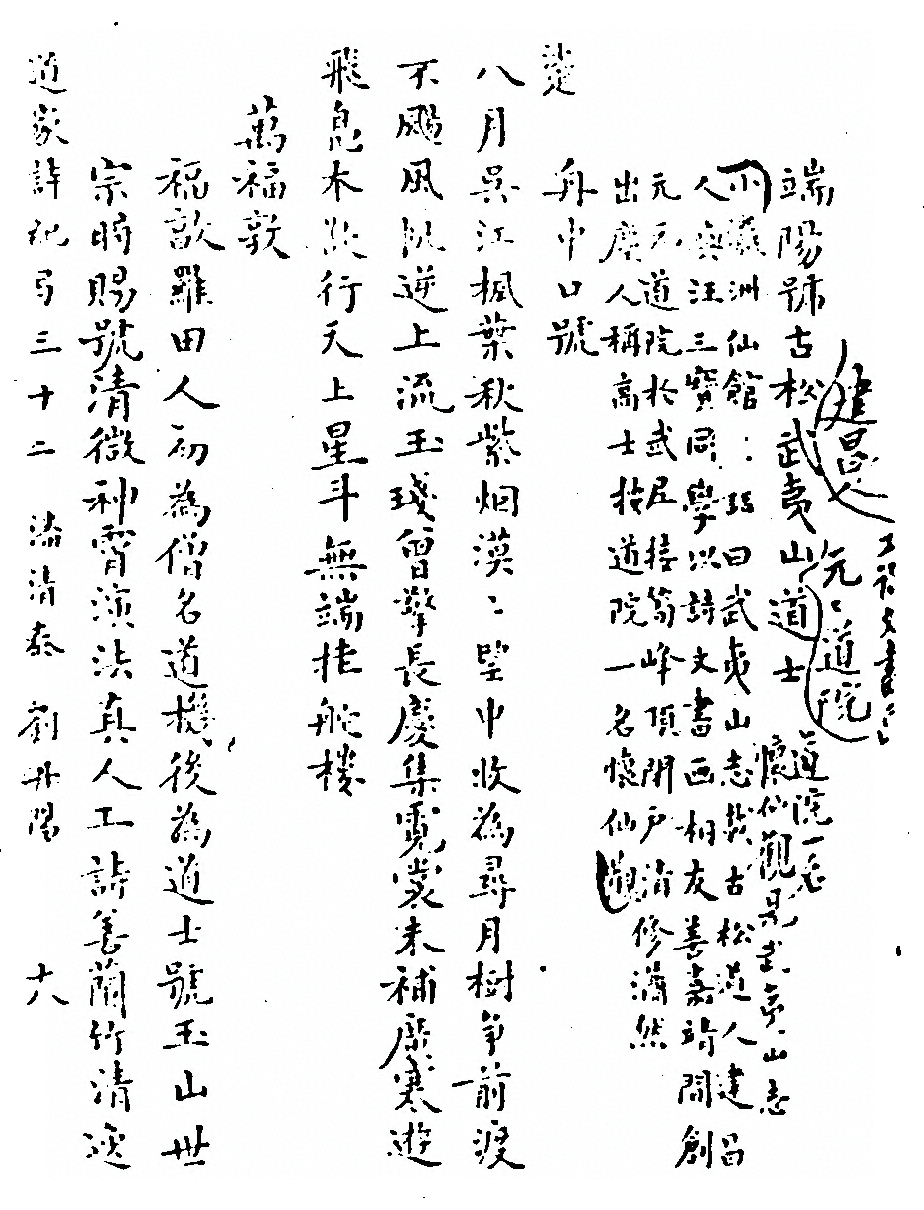 建昌人
元元道院
工詩文書畫
端陽號古松武夷山道士
道院一名
懷仙觀見武夷山志
小瀛洲仙館〻話曰武夷山志載古松道人建昌
人與汪三寶同學以詩文書画相友善嘉靖間創
元元道院於武夷接筍峰頂閉戶清修瀟然
出塵人稱高士於道院一名懷仙觀
舟中口號
八月吳江楓葉秋紫烟漠〻望中收為尋月樹爭前渡
不颺風帆逆上流玉殘曾擎長慶集霓裳未補廣寒遊
飛鳧木欲行天上星斗無端挂舵樓
萬福敦
福敦羅田人初為僧名道機後為道士號玉山世
宗時賜號清微神霄演法真人工詩善蘭竹清逸
道家詩紀弓三十二 潘清泰 劉丹陽 十八